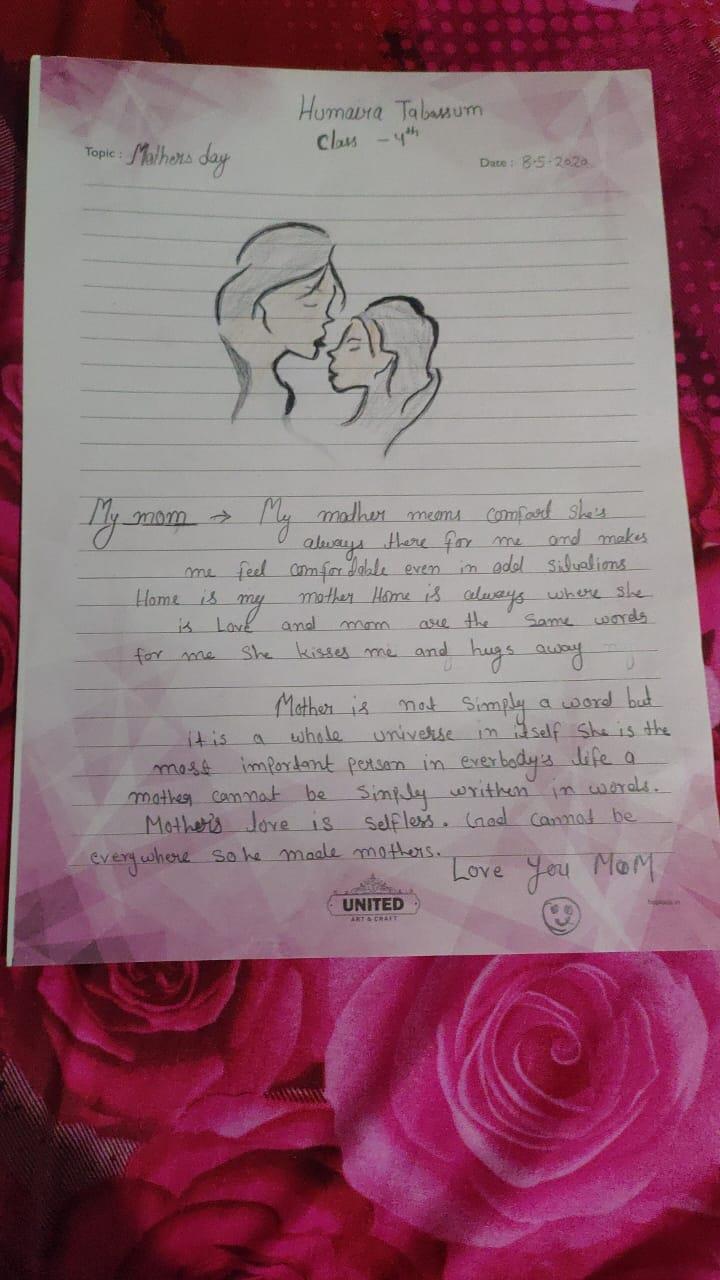 Humaira Tabassum
Class - 4th
Topic : Mothers day
Date : 8-5-2020
My mom → My mother means comfort she's
always there for me and makes
me feel comfortable even in odd situations
Home is my mother Home is always where she
is Love and mom are the same words
for me She kisses me and hugs away
Mother is not simply a word but
it is a whole universe in itself She is the
most important person in everbody's life a
mother cannat be sinply writhen in words.
Mother's love is selfless. God cannot be
everywhere so he made mothers.
Love You MoM
UNITED
ART & CRAFT